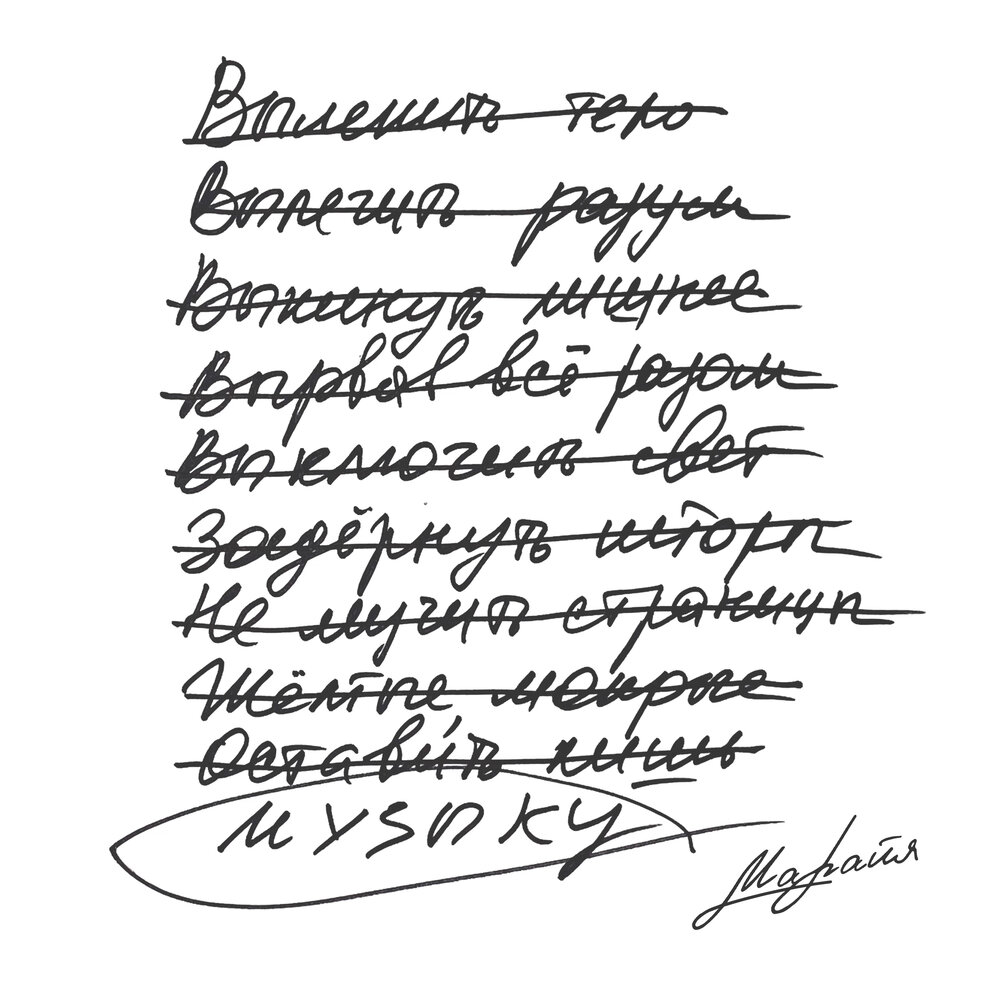 Вылепить тело
Вылечить разум
Выкинуть лишнее
Вырвав всё разом
Выключить свет
Задёрнуть шторы
Не мучить страницы
Жёлтые мокрые
Оставить лишь
МУЗЫКУ
Марайя